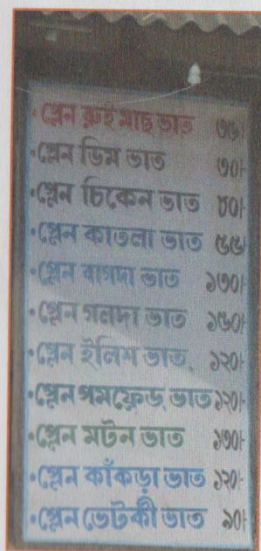 • প্লেন রুই মাছ ভাত ৩৫/-
• প্লেন ডিম ভাত ৩০/-
• প্লেন চিকেন ভাত ৮০/-
• প্লেন কাতলা ভাত ৫৫/-
• প্লেন বাগদা ভাত ১৩০/-
• প্লেন গলদা ভাত ১৬০/-
• প্লেন ইলিশ ভাত ১২০/-
• প্লেন পমফ্রেড ভাত ১২০/-
• প্লেন মটন ভাত ১৩০/-
• প্লেন কাঁকড়া ভাত ১২০/-
• প্লেন ভেটকী ভাত ৯০/-